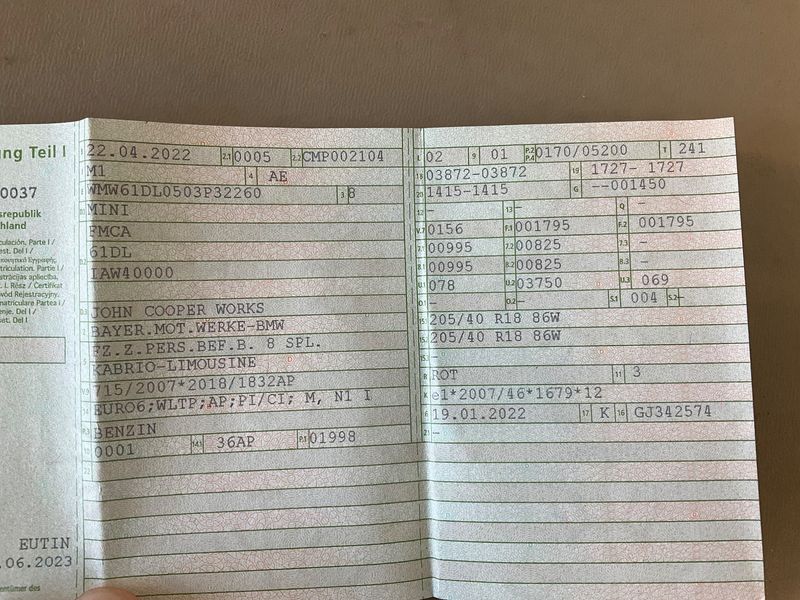 ung Teil I
0037
srepublik
hland
culación. Parte I /
est. Del I /
riculation. Partie I /
I. Rész / Certifikat
wód Rejestracyjny.
matriculare Partea I /
enje. Del I /
set. Del I
EUTIN
.06.2023
22.04.2022 2.1 0005 2.2 CMP002104
M1 4 AE
WMW61DL0503P32260 3 8
MINI
FMCA
61DL
1AW40000
D.3 JOHN COOPER WORKS
BAYER.MOT.WERKE-BMW
FZ.Z.PERS.BEF.B. 8 SPL.
5 KABRIO-LIMOUSINE
V.9 715/2007*2018/1832AP
14 EURO6;WLTP;AP;PI/CI; M, N1 I
P.3 BENZIN
10 0001 14.1 36AP P.1 01998
22
L 02 9 01 P.2 P.4 0170/05200 T 241
18 03872-03872 19 1727- 1727
20 1415-1415 G --001450
12 - 13 - Q -
V.7 0156 F.1 001795 F.2 001795
7.1 00995 7.2 00825 7.3 -
8.1 00995 8.2 00825 8.3 -
U.1 078 U.2 03750 U.3 069
O.1 - O.2 - S.1 004 S.2 -
15.1 205/40 R18 86W
15.2 205/40 R18 86W
15.3 -
R ROT 11 3
K e1*2007/46*1679*12
6 19.01.2022 17 K 16 GJ342574
21 -